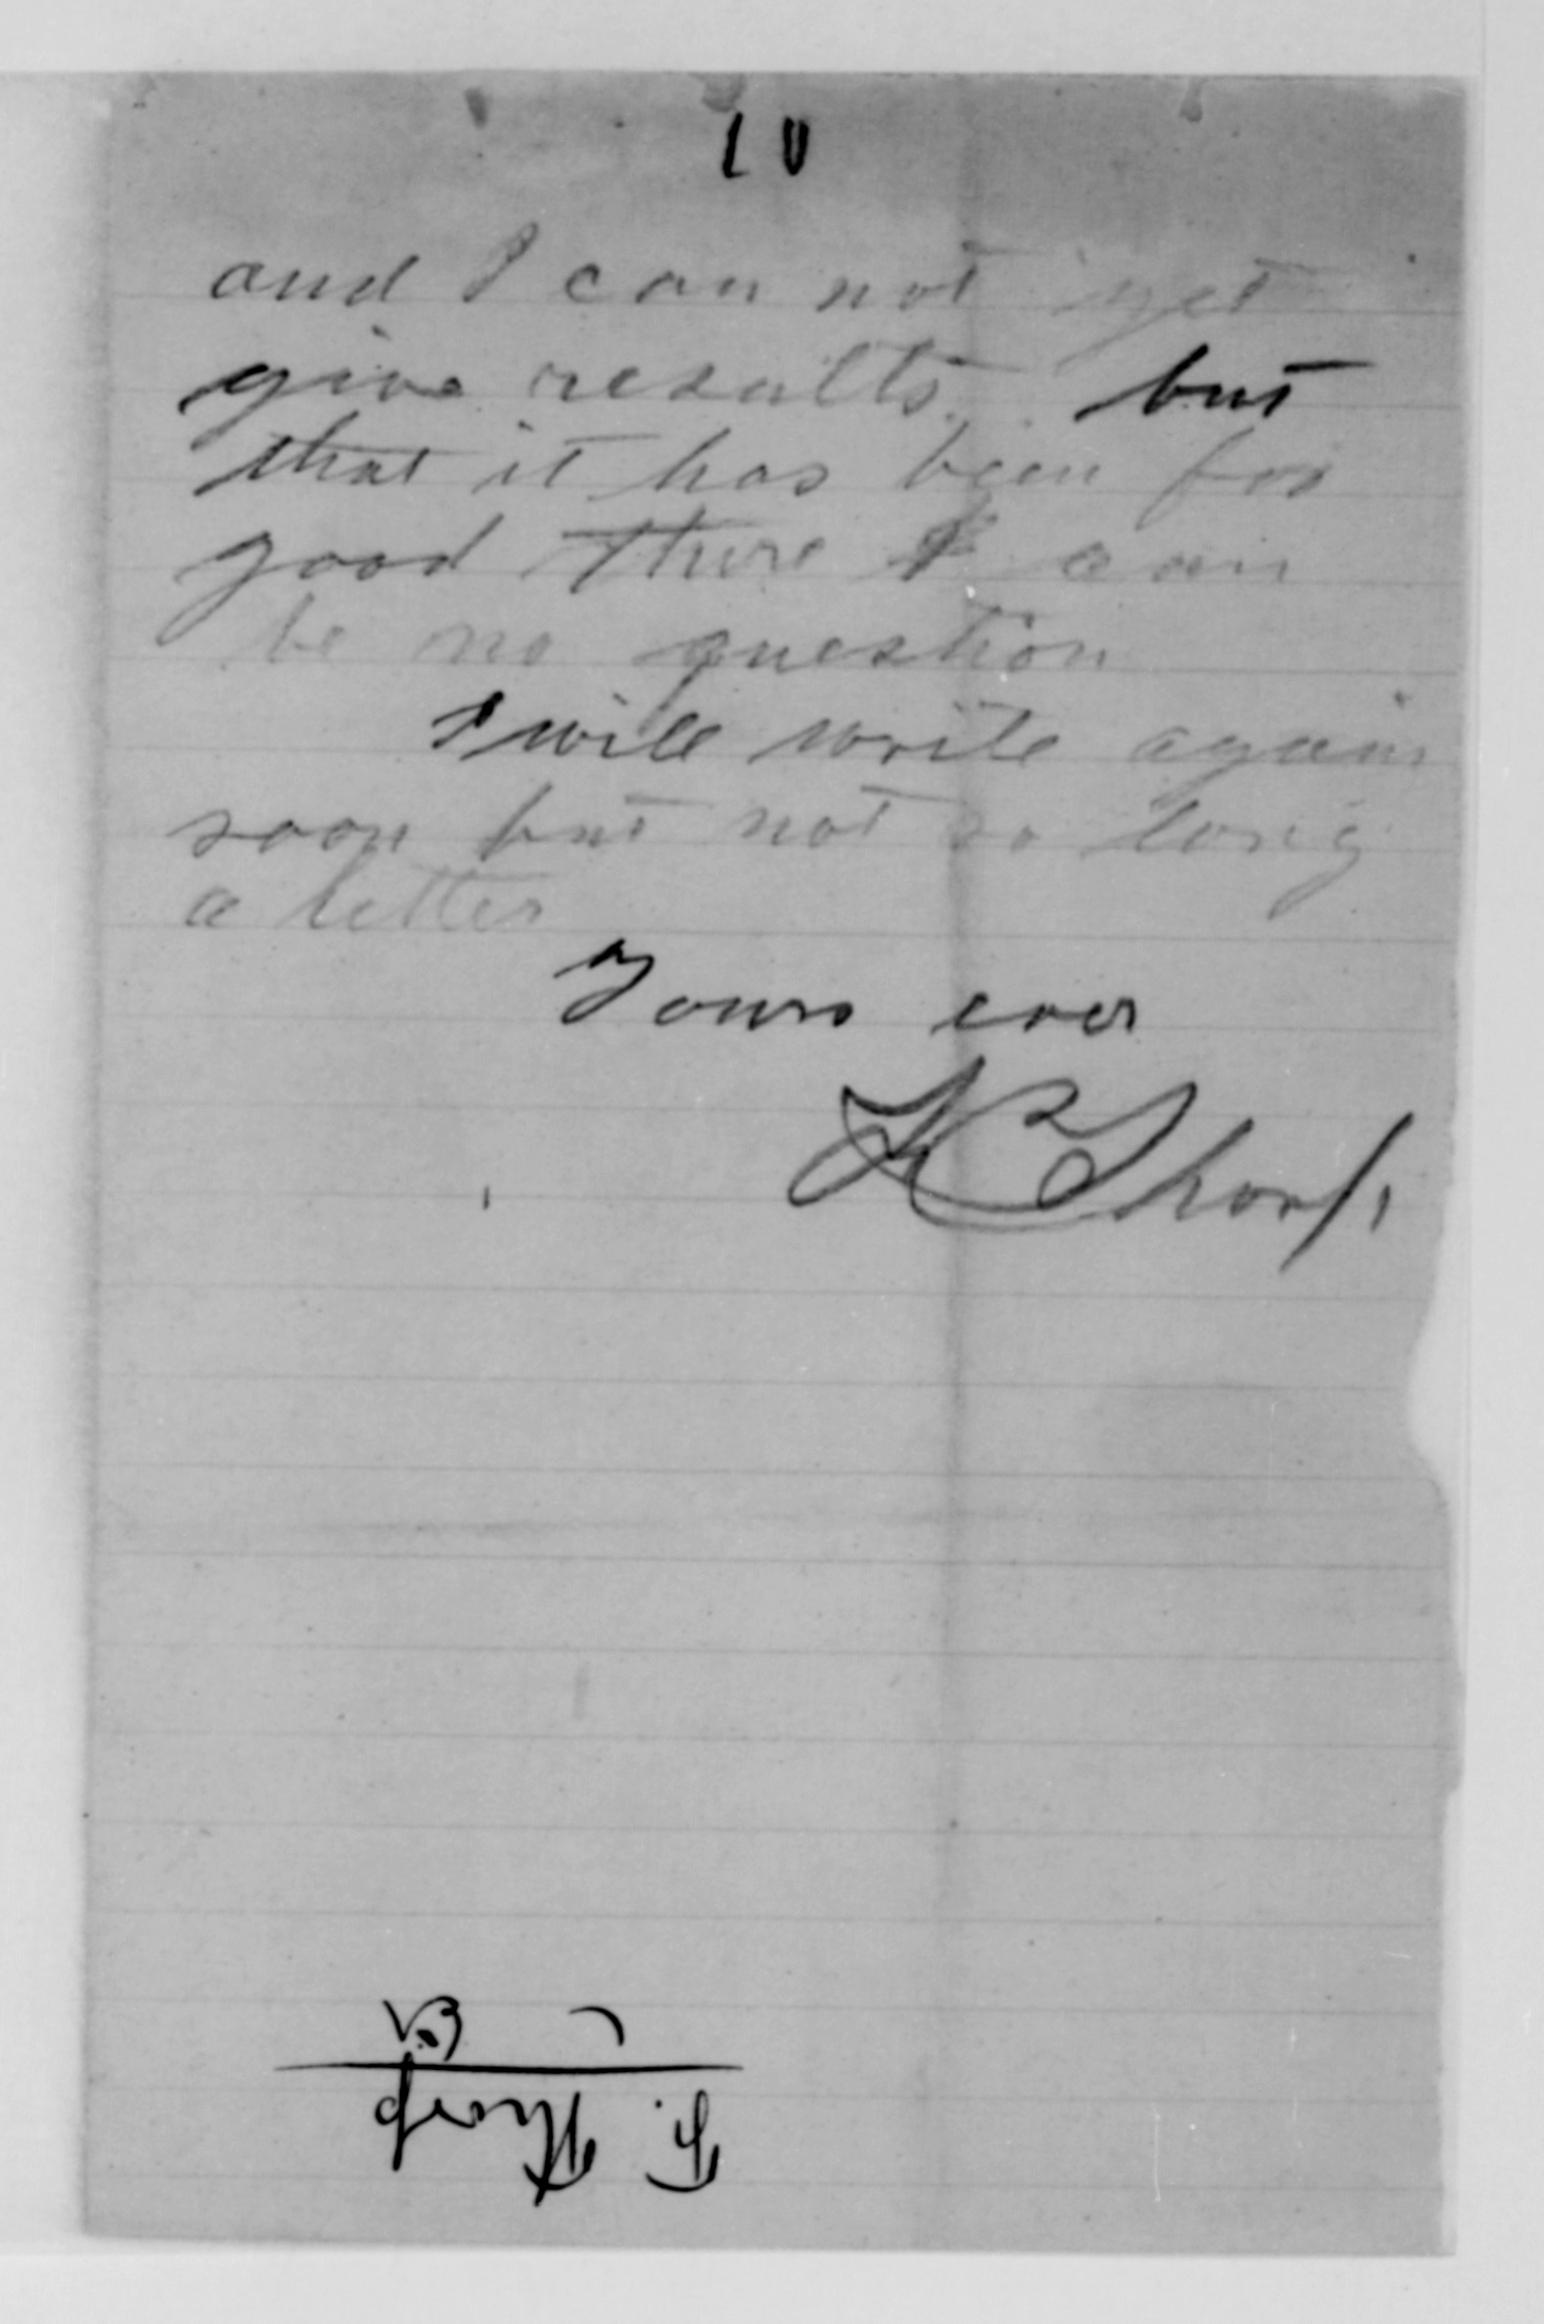 10
and I can not yet
give results, but
that it has been for
good there can
be no question
I will write again
soon but not so long
a letter
Yours ever
F Thorp
F. Thorp